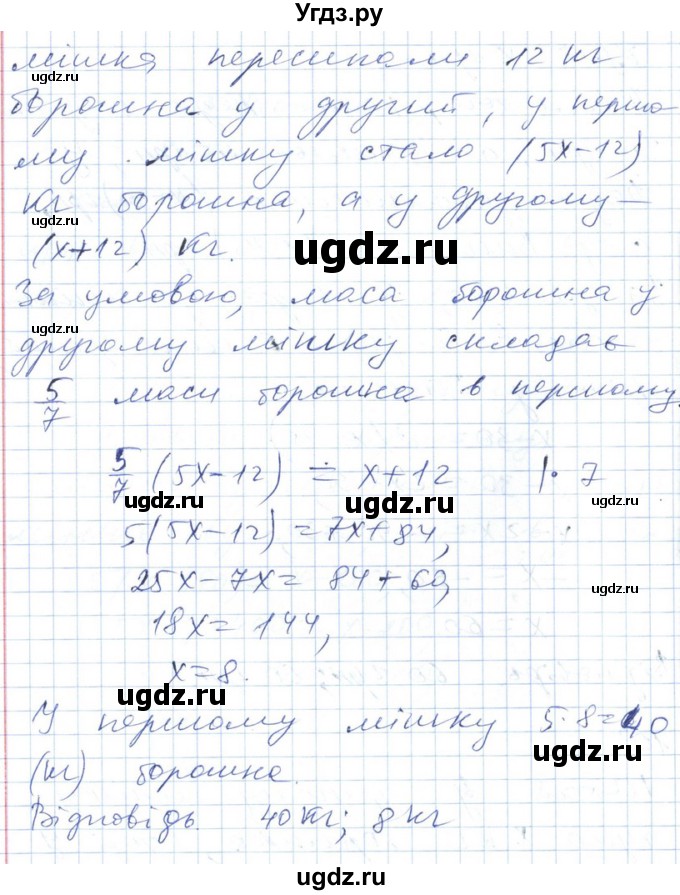 Угдз.ру
мішка пересипали 12 кг
борошна у другий, у першо-
му мішку стало (5x-12)
кг борошна, а у другому -
(x+12) кг.
ugdz.ru
За умовою, маса борошна у
другому мішку складає
5/7 маси борошна в першому.
5/7 (5x-12) = x+12 |· 7
5(5x-12) = 7x+84,
25x-7x = 84+60,
18x = 144,
x=8.
ugdz.ru
У першому мішку 5·8=40
(кг) борошна.
Відповідь. 40 кг; 8 кг
ugdz.ru